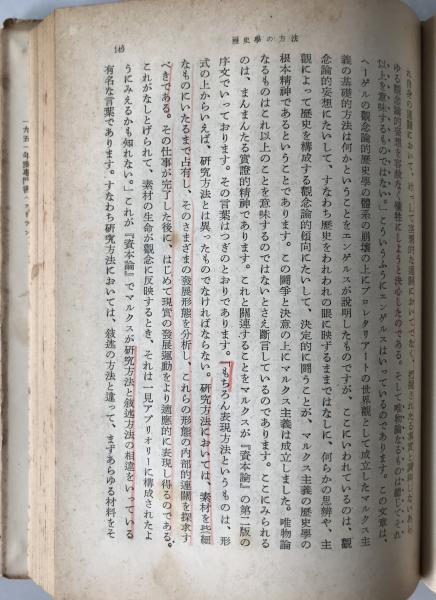 歴史學の方法
149
れ自身の連關において、けっして空想的な連關においてでなく、把握された事實と調和しないあら
ゆる觀念論的妄想を容赦なく犠牲にしようと決心したのである。そして唯物論なるものは總じてそれ
以上を意味するものではない。」こういうふうにエンゲルスはいっているのであります。この文章は、
ヘーゲルの觀念論的歴史學の體系の崩壞の上にプロレタリアートの世界觀として成立したマルクス主
義の基礎的方法は何かということをエンゲルスが說明したものですが、ここにいわれているのは、觀
念論的妄想にたいして、すなわち歴史をわれわれの眼に映ずるままではなしに、何らかの思辨や、主
觀によって歴史を構成する觀念論的傾向にたいして、決定的に鬪うことが、マルクス主義の歴史學の
根本精神であるということであります。この鬪爭と決意の上にマルクス主義は成立しました。唯物論
なるものはこれ以上のことを意味するのではないとさえ斷言しているのであります。ここにみられる
のは、まんまんたる實證的精神であります。これと關連することをマルクスが『資本論』の第二版の
序文でいっております。その言葉はつぎのとおりであります。「もちろん表現方法というものは、形
式の上からいえば、研究方法とは異ったものでなければならない。研究方法においては、素材を些細
なものにいたるまで占有し、そのさまざまの發展形態を分析し、これらの形態の內部的連關を探求す
べきである。その仕事が完了した後に、はじめて現實の發展運動をより適應的に表現し得るのである。
これがなしとげられて、素材の生命が觀念に反映するとき、それは一見アプリオリーに構成されたよ
うにみえるかも知れない。」これが『資本論』でマルクスが研究方法と敍述方法の相違をいっている
有名な言葉であります。すなわち研究方法においては、敍述の方法と違って、まずあらゆる材料をそ